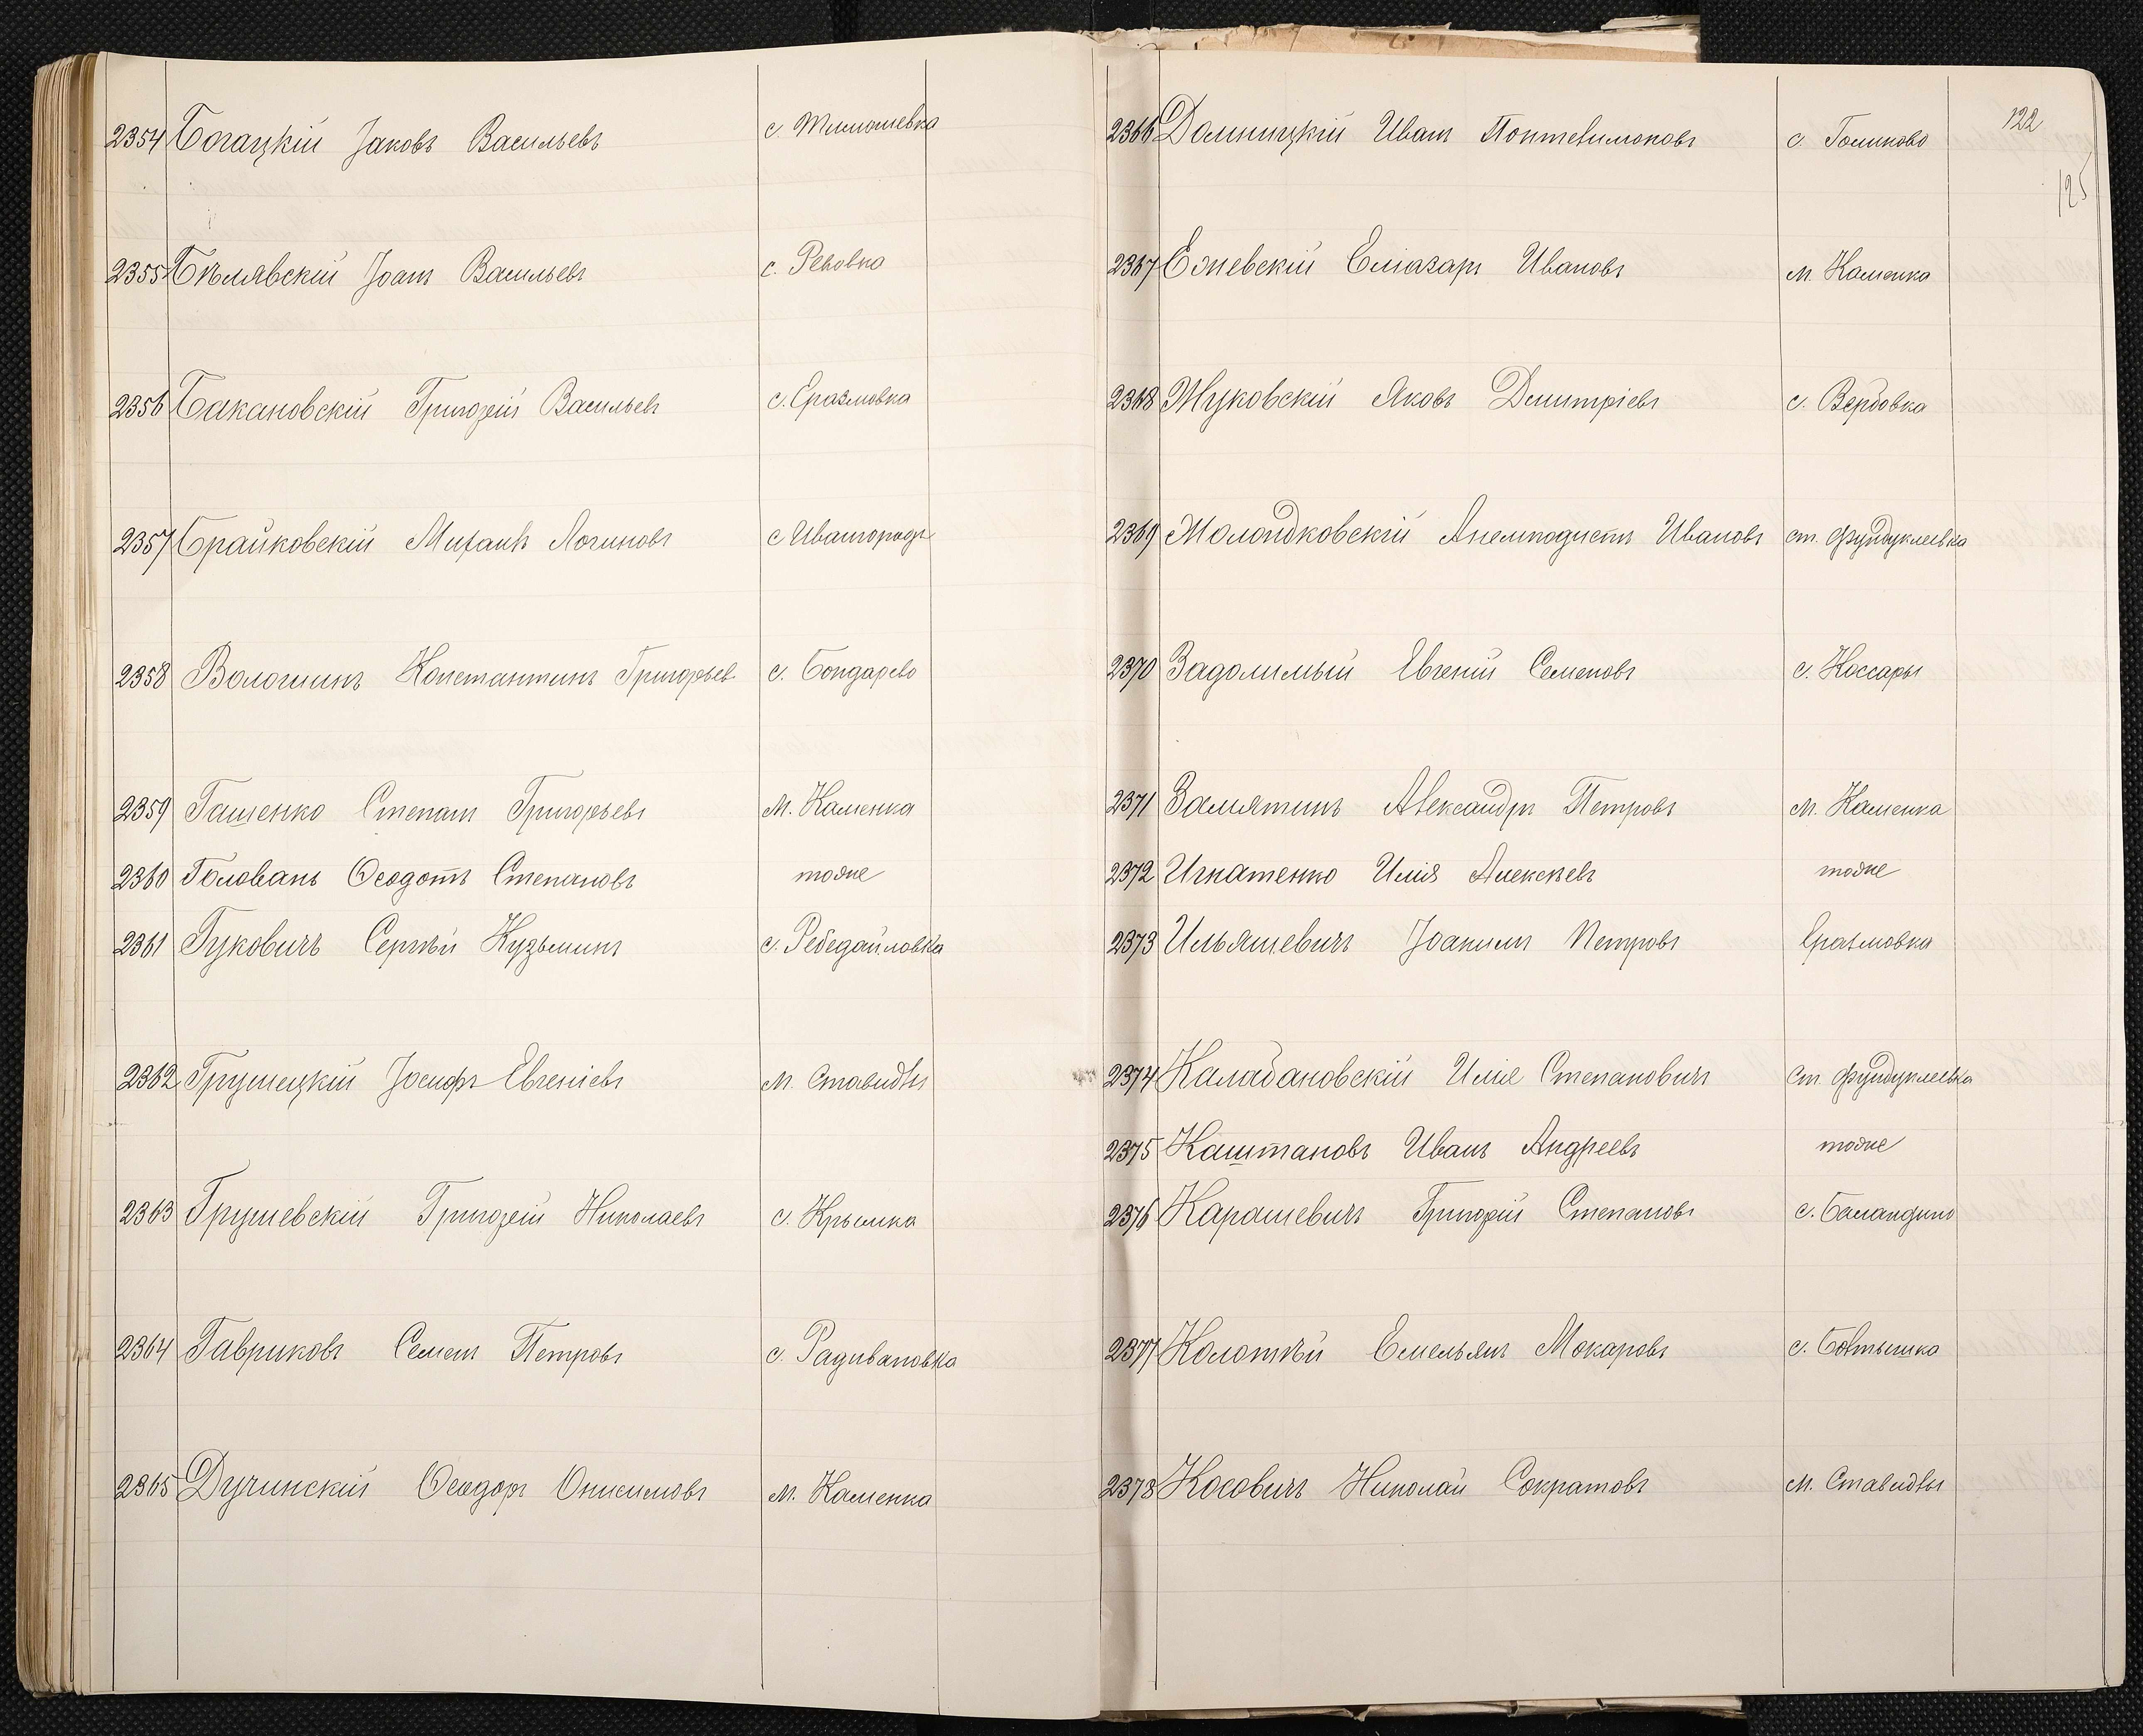 2354 Богацкій Іаковъ Васильевъ с. Тимошевка
2355 Бѣлявскій Іоанъ Васильевъ с. Ревовка
2356 Бакановскій Григорій Васильевъ с. Еразмовка
2357 Брайковскій Михаилъ Логиновъ с Ивангородъ
2358 Волошинъ Константинъ Григорьев с. Бондарево
2359 Гашенко Степанъ Григорьевъ м. Каменка
2360 Головань Ѳеодотъ Степановъ тоже
2361 Гуковичъ Сергѣй Кузьминъ с. Ребедайловка
2362 Грушецкій Іосифъ Евгеніевъ м. Ставидлы
2363 Грушевскій Григорій Николаевъ с. Крымка
2364 Гавриковъ Семенъ Петровъ с. Радивановка
2365 Дучинскій Ѳеодоръ Онисимовъ м. Каменка
122
125
2366 Домницкій Иванъ Понтелимоновъ с. Голиково
2367 Ежевскій Еліазаръ Ивановъ м. Каменка
2368 Жуковскій Яковъ Димитріевъ с. Вербовка
2369 Жолондковскій Анемподистъ Ивановъ ст. Фундуклеевка
2370 Задолимый Евгеній Семеновъ с. Коссары
2371 Замятинъ Александръ Петровъ м. Каменка
2372 Игнатенко Илія Алексѣевъ тоже
2373 Ильяшевичъ Іоакимъ Петровъ Еразмовка
2374 Калабановскій Илія Степановичъ ст. Фундуклеевка
2375 Каштановъ Иванъ Андреевъ тоже
2376 Карашевичъ Григорій Степановъ с. Баландино
2377 Колотѣй Емельянъ Макаровъ с. Болтышка
2378 Косовичъ Николай Сократовъ м. Ставидлы